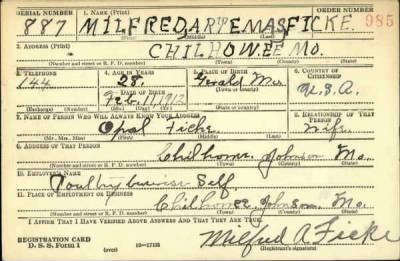 SERIAL NUMBER 1. NAME (Print) ORDER NUMBER
887 MILFRED ARTEMAS FICKE. 985
(First) (Middle) (Last)
2. ADDRESS (Print)
CHILHOWEE MO.
(Number and street or R. F. D. number) (Town) (County) (State)
3. TELEPHONE 4. AGE IN YEARS 5. PLACE OF BIRTH 6. COUNTRY OF CITIZENSHIP
144 28 Gerald Mo U.S.A.
DATE OF BIRTH (Town or county)
Feb. 17 1912
(Exchange) (Number) (Mo.) (Day) (Yr.) (State or country)
7. NAME OF PERSON WHO WILL ALWAYS KNOW YOUR ADDRESS 8. RELATIONSHIP OF THAT PERSON
Opal Ficke wife
(Mr., Mrs., Miss) (First) (Middle) (Last)
9. ADDRESS OF THAT PERSON
Chilhowee Johnson Mo.
(Number and street or R. F. D. number) (Town) (County) (State)
10. EMPLOYER'S NAME
Poultry business Self.
11. PLACE OF EMPLOYMENT OR BUSINESS
Chilhowee, Johnson, Mo.
(Number and street or R. F. D. number) (Town) (County) (State)
I AFFIRM THAT I HAVE VERIFIED ABOVE ANSWERS AND THAT THEY ARE TRUE.
REGISTRATION CARD
D. S. S. FORM 1 (over) 16—17105 Milfred A Ficke
(Registrant's signature)